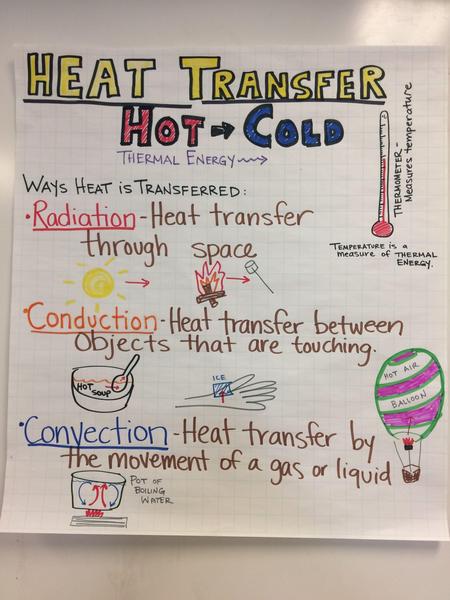 HEAT TRANSFER
HOT → COLD
THERMAL ENERGY
THERMOMETER-
Measures temperature
TEMPERATURE is a
measure of THERMAL
ENERGY.
WAYS HEAT IS TRANSFERRED:
·Radiation-Heat transfer
through space
·Conduction-Heat transfer between
Objects that are touching.
HOT
SOUP
ICE
HOT AIR
BALLOON
·Convection-Heat transfer by
the movement of a gas or liquid
POT OF
BOILING
WATER